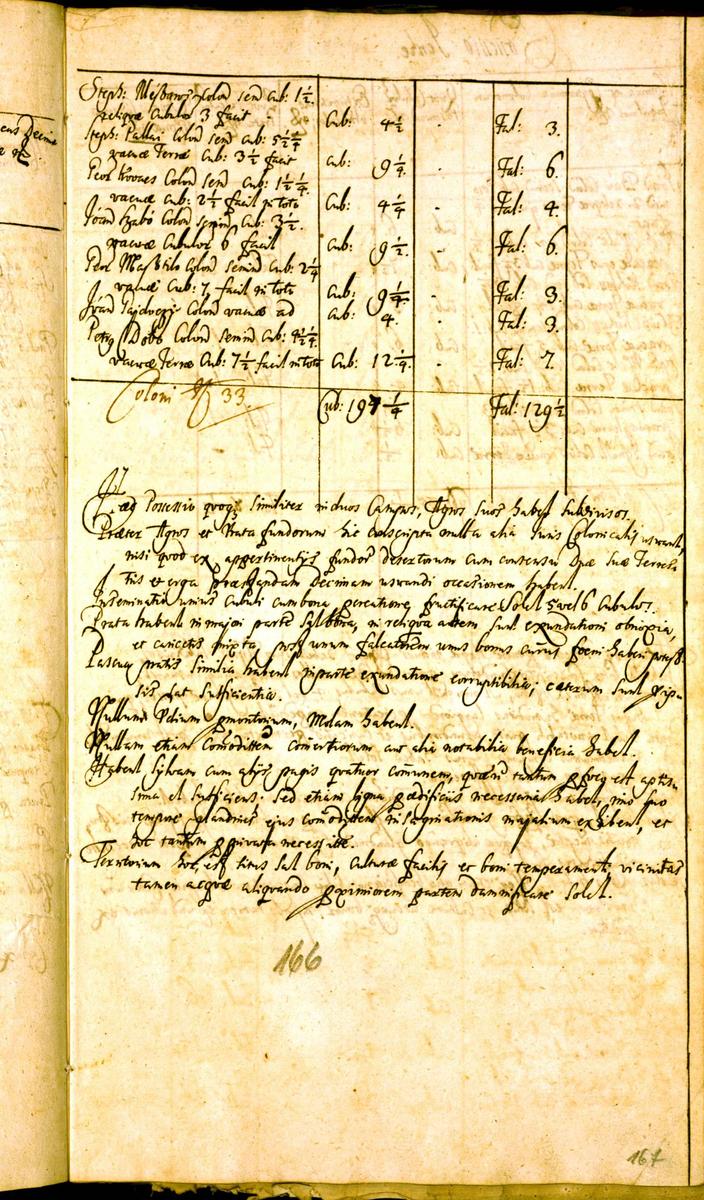 Steph: Mészaros Colon: sem: Cub: 1½.
reliquæ Cubulor 3 facit Cub: 4½ . Fal: 3.
Steph: Pallai Colon sem Cub: 5½
vacuæ Terræ Cub: 3½ facit Cub: 9¼. . Fal: 6.
Petr Kovacs Colon sem Cub:
vacuæ Cub: 2½ facit in toto Cub: 4¼ . Fal: 4.
Joan Szabó Colon semin Cub: 3½.
vacuæ Cubulor 6 facit Cub: 9½. . Fal: 6.
Petr Colon semin Cub: 2¼
vacuæ Cub: 7 facit in toto Cub: 9¼. . Fal: 3.
Colon vacuæ ad Cub: 4. . Fal: 3.
Petrg Dobo Colon semin Cub: 4½
vacuæ Terræ Cub: 7½ facit in toto Cub: 12¼. . Fal: 7.
Coloni 33. Cub: 197¼ Fal: 129½
Hæc Possessio quoq; similiter in duos Campos, Agros suos habet subdivisos.
Præter Agros et Prata fundorum hic conscripta nulla alia Juris Colonicalis usuant,
nisi quod ex appertinentijs fundor desertorum cum consensu Dnæ suæ Terres
tris et erga præstandam Decimam usuandi occasionem habent.
Inseminatio unius Cubuli cum bona procreatione fructificare Solet 5 vel 6 Cubulos.
Prata habent in majori parte sat bona, in reliqua autem sunt exundationi obnoxia,
et caricetis mixta, post unum falcatorem unus bonus currus foeni haberi potest.
Pascua pratis similia habent in parte exundatione corruptibilia; cæterum sunt
sat sufficientia.
Nullum Vinearum promontorium, Molam habent.
Nullam etiam Comoditatem Comertiorum aut alia notabilia beneficia habet.
Habent Sylvam cum alijs pagis quatuor comunem, quæ tantum pro foco est aptis
sima et sufficiens. Sed etiam ligna pro ædificijs necessaria habet, imo suo
tempore glandines ejus comoditatem in saginationis majalium exhibent, et
hoc tantum pro privata necessitate.
Territorium hoc est situs sat boni, culturæ facilis et boni temperamenti, vicinitas
tamen aquæ aliquando proximiorem partem damnificare solet.
166
167